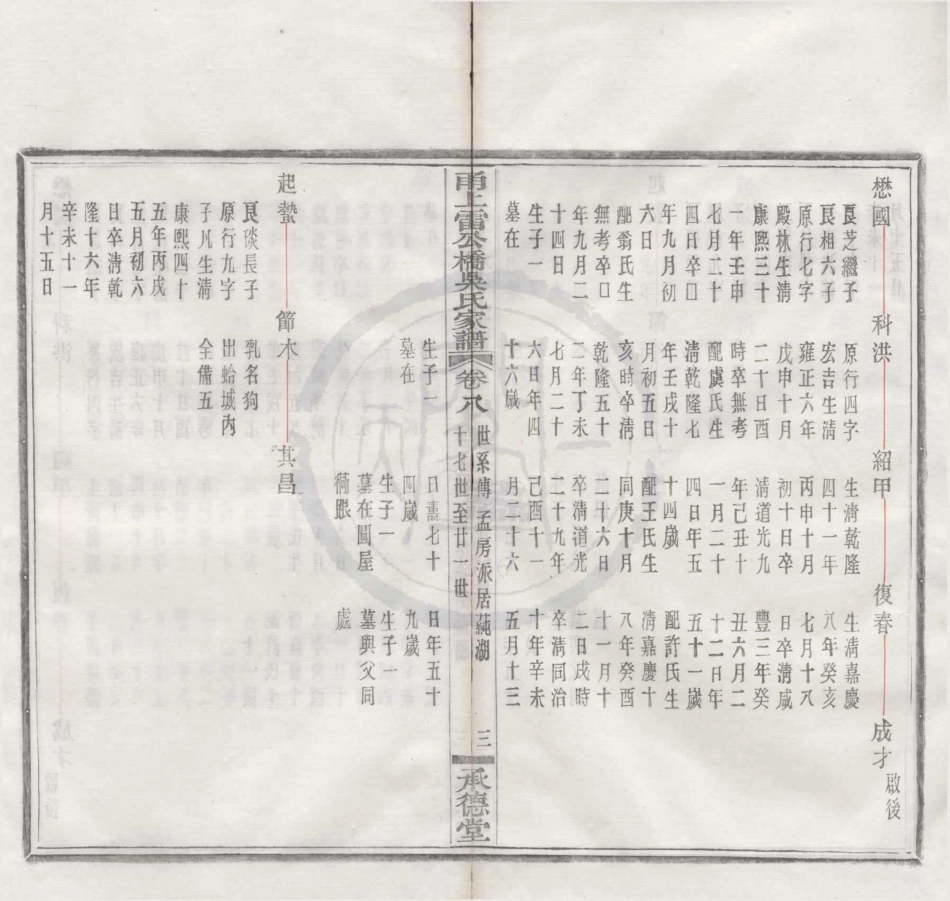 懋國
科洪
紹甲
復春
成才
啟後
良芝繼子
良相六子
原行七字
殿林生清
康熙三十
一年壬申
七月二十
四日卒口
年九月初
六日
配翁氏生
無考卒口
年九月二
十四日
生子一
墓在
原行四字
宏吉生清
雍正六年
戊申十月
二十日酉
時卒無考
配虞氏生
清乾隆七
年壬戌十
月初五日
亥時卒清
乾隆五十
二年丁未
七月二十
六日年四
十六歲
生子一
墓在
生清乾隆
四十一年
丙申十月
初十日卒
清道光九
年己丑十
一月二十
四日年五
十四歲
配王氏生
同庚十月
二十六日
卒清道光
二十九年
己酉十一
月二十六
日壽七十
四歲
生子一
墓在圓屋
衕跟
生清嘉慶
八年癸亥
七月十八
日卒清咸
豐三年癸
丑六月二
十二日年
五十一歲
配許氏生
清嘉慶十
八年癸酉
十一月十
二日戌時
卒清同治
十年辛未
五月十三
日年五十
九歲
生子一
墓與父同
處
甬上雷公橋吳氏家譜
卷八
世系傳 孟房派居蒓湖
十七世至廿一世
三
承德堂
起蟄
節木
其昌
良琰長子
原行九字
子凡生清
康熙四十
五年丙戌
五月初六
日卒清乾
隆十六年
辛未十一
月十五日
乳名狗
出蛤城內
全備五